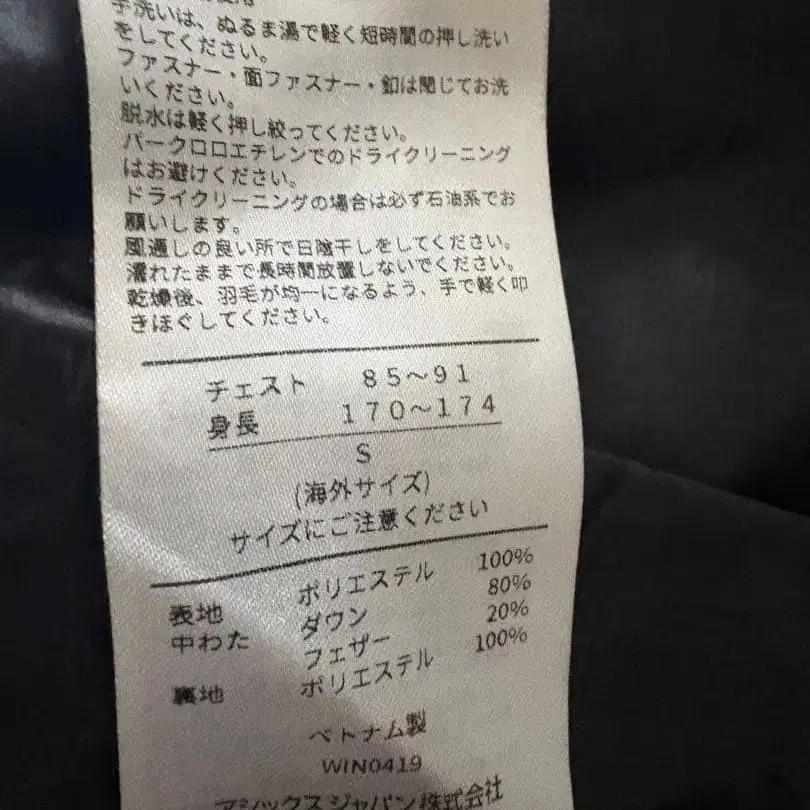 手洗いは、ぬるま湯で軽く短時間の押し洗い
をしてください。
ファスナー・面ファスナー・釦は閉じてお洗
いください。
脱水は軽く押し絞ってください。
パークロロエチレンでのドライクリーニング
はお避けください。
ドライクリーニングの場合は必ず石油系でお
願いします。
風通しの良い所で日陰干しをしてください。
濡れたままで長時間放置しないでください。
乾燥後、羽毛が均一になるよう、手で軽く叩
きほぐしてください。
チェスト 85〜91
身長 170〜174
S
(海外サイズ)
サイズにご注意ください
表地 ポリエステル 100%
中わた ダウン 80%
フェザー 20%
裏地 ポリエステル 100%
ベトナム製
WIN0419
アシックスジャパン株式会社